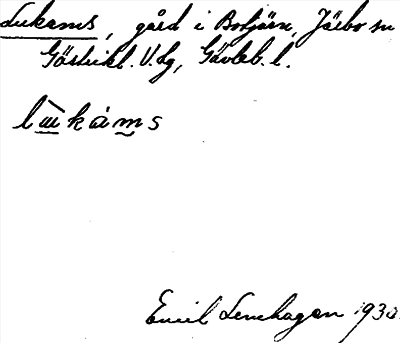 Lukams, gård i Botjärn, Järbo sn
Gästrikl. V. lg, Gävleb. l.
lu̲kám̰s
Emil Lenhagen 1930